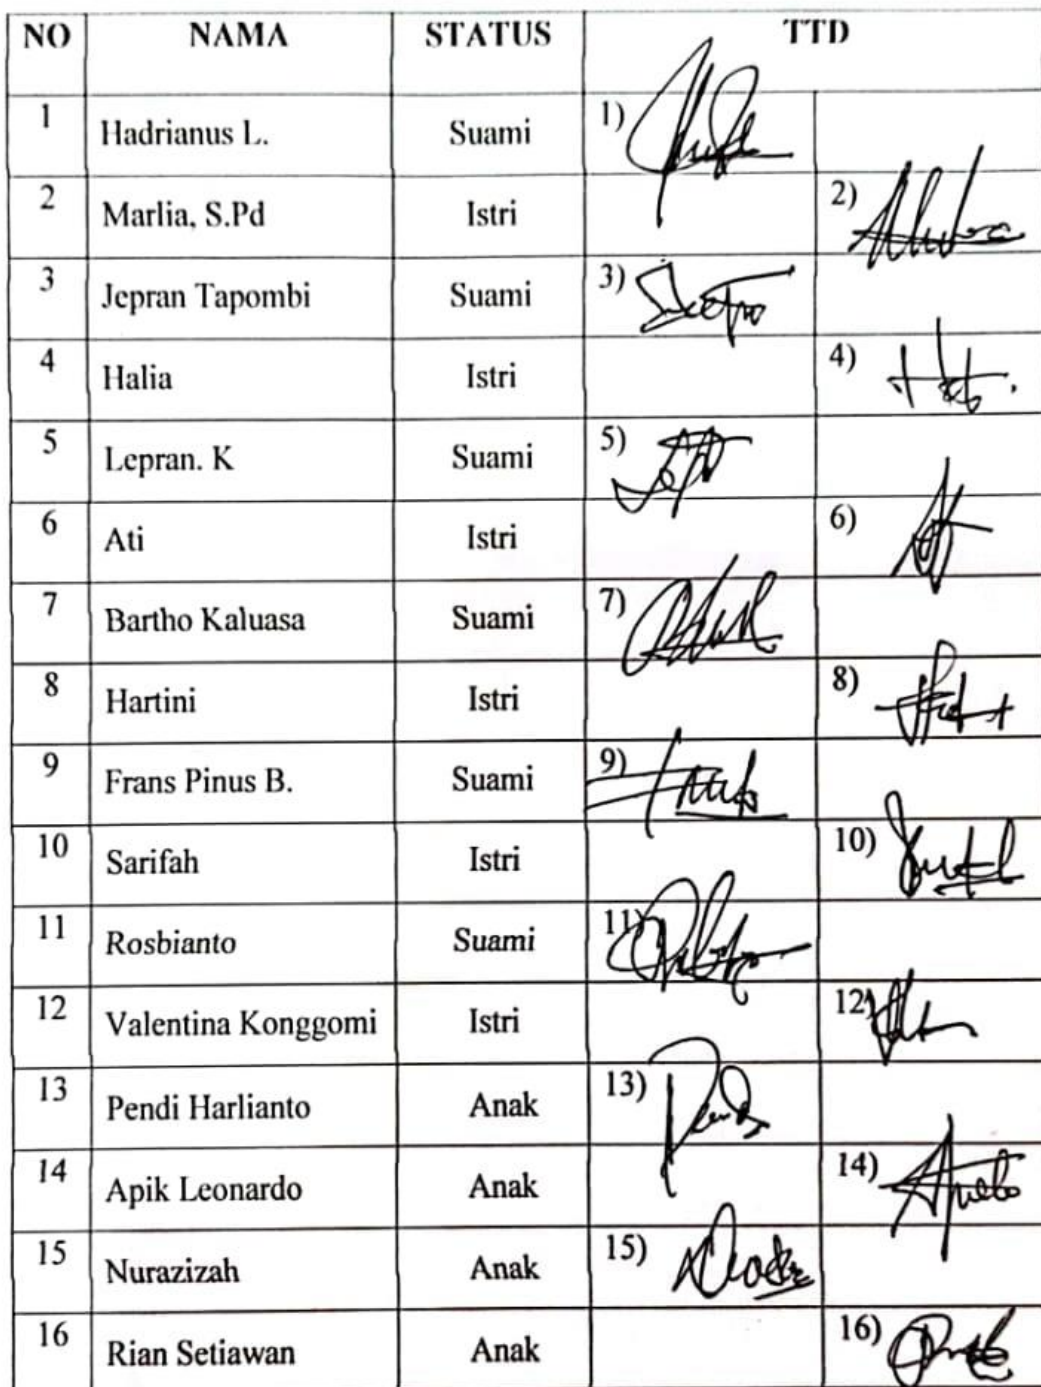 NO NAMA STATUS TTD
1 Hadrianus L. Suami 1)
2 Marlia, S.Pd Istri 2)
3 Jepran Tapombi Suami 3)
4 Halia Istri 4)
5 Lepran. K Suami 5)
6 Ati Istri 6)
7 Bartho Kaluasa Suami 7)
8 Hartini Istri 8)
9 Frans Pinus B. Suami 9)
10 Sarifah Istri 10)
11 Rosbianto Suami 11)
12 Valentina Konggomi Istri 12)
13 Pendi Harlianto Anak 13)
14 Apik Leonardo Anak 14)
15 Nurazizah Anak 15)
16 Rian Setiawan Anak 16)